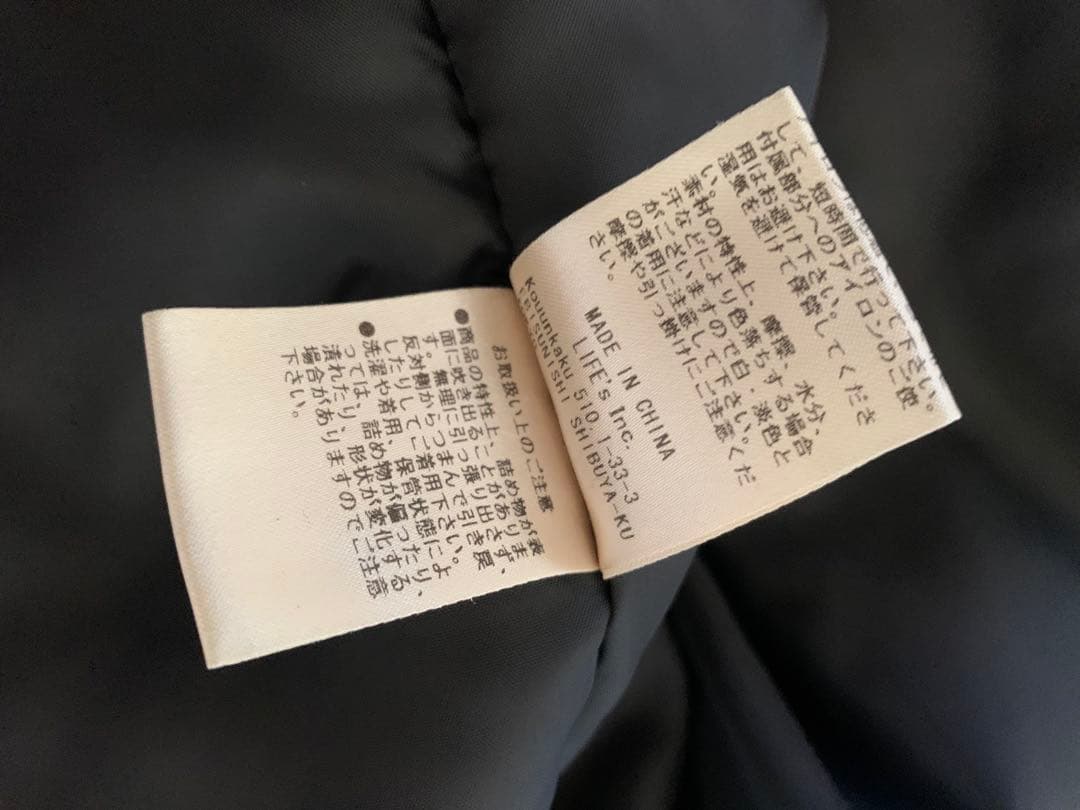 して、短時間で行って下さい。
付属部分へのアイロンのご使
用はお避け下さい。
湿気を避けて保管してくださ
い。
素材の特性上、摩擦、水分、
汗などにより色落ちする場合
がございますので白、淡色と
の着用に注意して下さい。
摩擦や引っ掛けにご注意くだ
さい。
MADE IN CHINA
LIFE's Inc.
Kouunkaku 510 1-33-3
EBISUNISHI SHIBUYA-KU
お取扱い上のご注意
●商品の特性上、詰め物が表
面に吹き出ることがありま
す。無理に引っ張り出さず、
反対側からつまんで引き戻
したりしてご着用下さい。
●洗濯や着用、保管状態によ
っては、詰め物が偏ったり、
潰れたり、形状が変化する
場合がありますのでご注意
下さい。